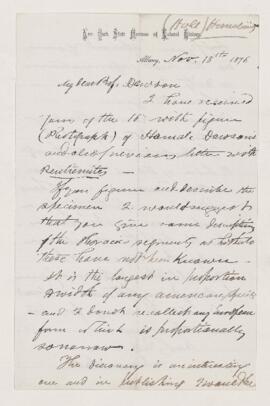 (Holl / Homalonotus
New York State Museum of Natural History,
Albany, Nov. 13th 1876
My dear Prof. Dawson
I have received
yours of the 10 with figure
(Photograph) of Homal. Dawsoni
and also previous letter with
If you figure and describe the
specimen I would suggest
that you give some description
of the thorax segments as hitherto
these have not been known
It is the largest in proportion
width of any american species
and I do not recollect any european
form which is proportionally
so narrow.
The discovery is an interesting
one and in publishing I would